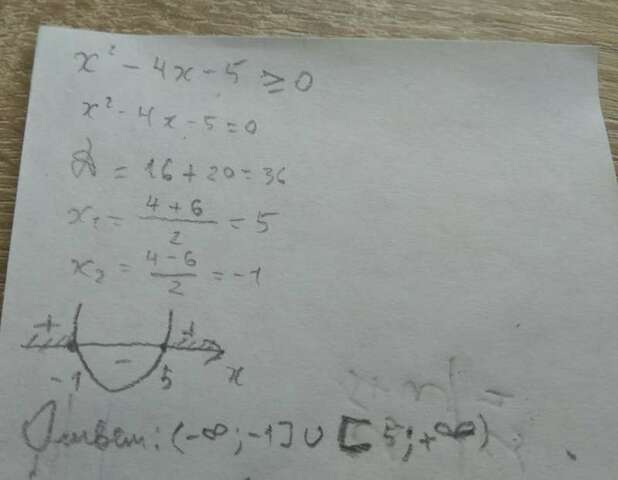 x² - 4x - 5 ≥ 0
x² - 4x - 5 = 0
D = 16 + 20 = 36
x₁ = (4 + 6)/2 = 5
x₂ = (4 - 6)/2 = -1
+ - +
-1 5 x
Ответ: (-∞; -1] ∪ [5; +∞)